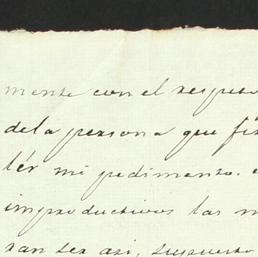 mente con el respeto
de la persona que fir
lér mi pedimento.
improductivos las m
ran ser asi, supuesto